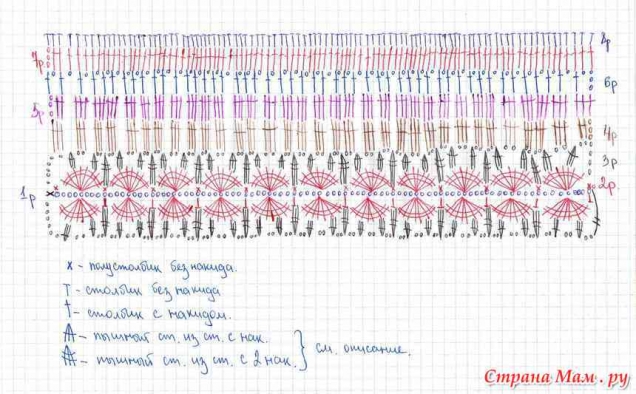 8р
7р
6р
5р
4р
3р
1р
2р
х - полустолбик без накида.
⊤ - столбик без накида
† - столбик с накидом.
- пышный ст. из ст. с нак.
- пышный ст. из ст. с 2 нак.
} см. описание.
Страна Мам.ру